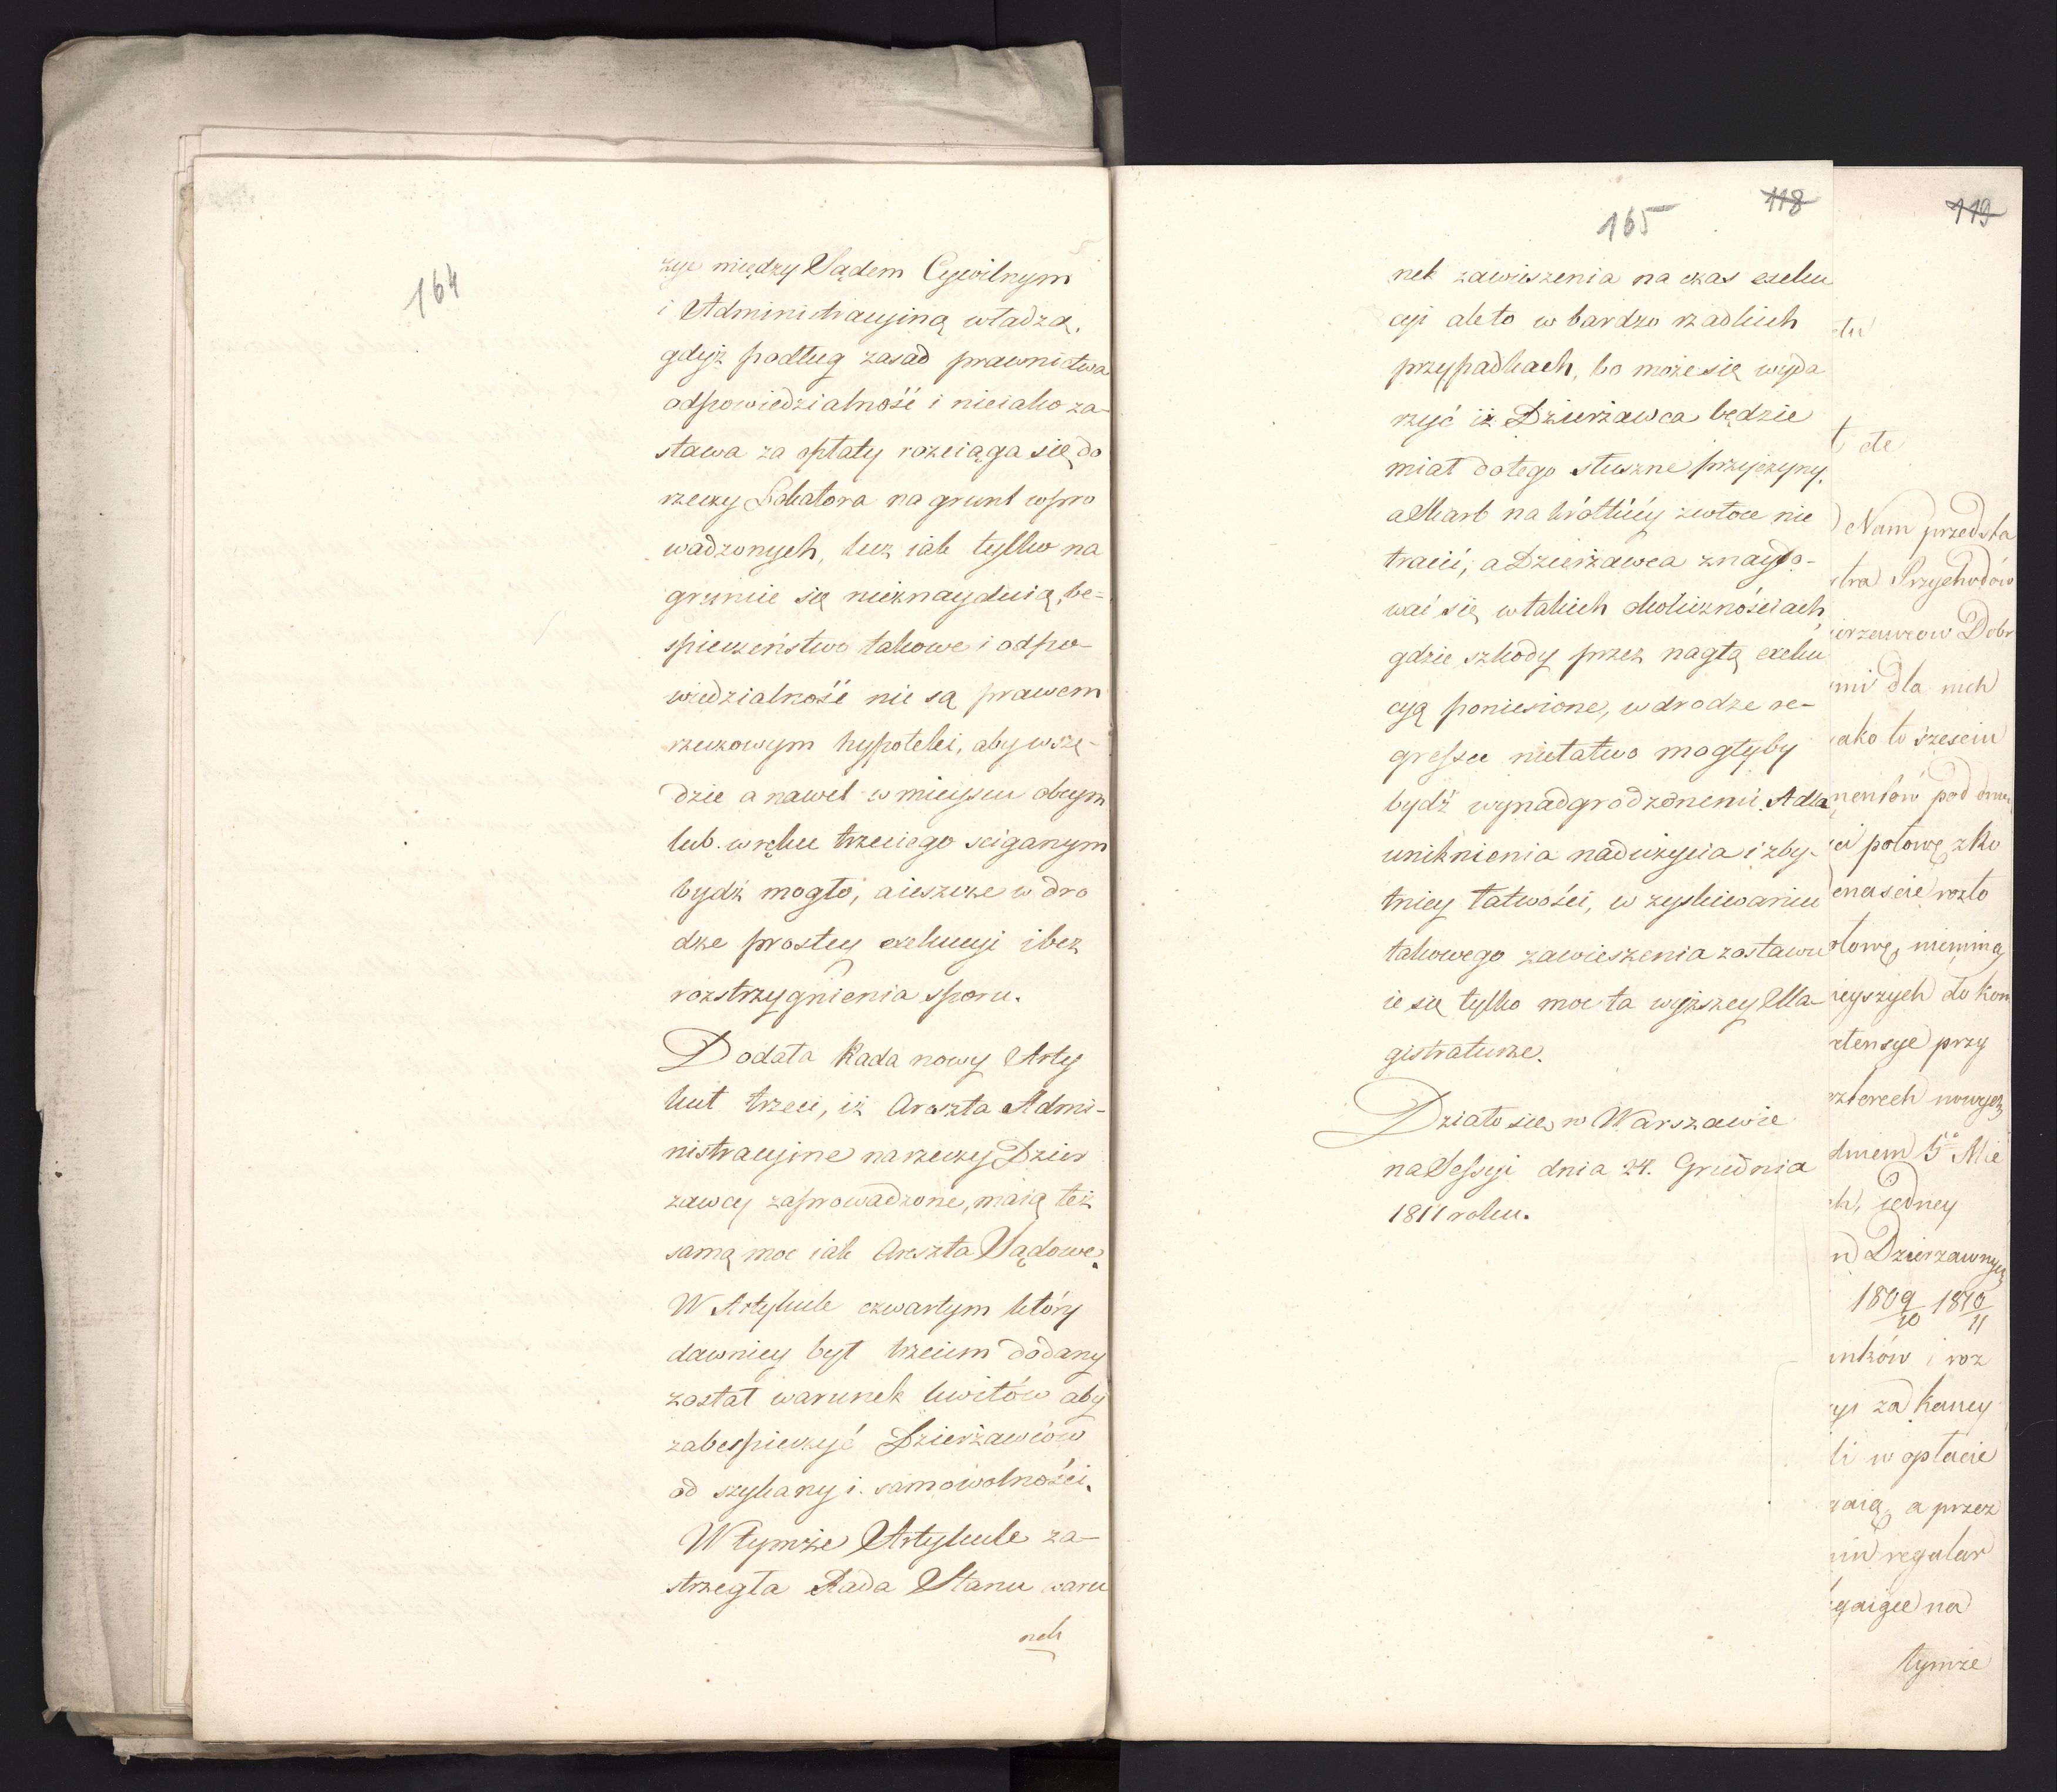 164
zye między Sądem Cywilnym
i Administracyiną władzą,
gdyż podług zasad prawnictwa
odpowiedzialność i nieiako za-
stawa za opłaty rozciąga się do
rzeczy Lokatora na grunt wpro
wadzonych, lecz iak tylko na
gruncie się nieznayduią, be-
spieczeństwo takowe i odpo-
wiedzialność nie są prawem
rzeczowym hypoteki, aby wszę-
dzie a nawet w mieyscu obcym
lub w ręku trzeciego sciganym
bydź mogło, a ieszcze w dro
dze prostey exekucyi i bez
rozstrzygnienia sporu.
Dodała Rada nowy Arty
kuł trzeci, iż Areszta Admi-
nistracyine na rzeczy Dzier
zawcy zaprowadzone, maią też
samą moc iak Areszta Sądowe.
W Artykule czwartym który
dawniey był trzecim dodany
został warunek kwitów aby
zabespieczyć Dzierżawców
od szykany i samowolności.
W tymże Artykule za-
strzegła Rada Stanu waru
nek
165
118
nek zawieszenia na czas exeku
cyi ale to w bardzo rzadkich
przypadkach, bo może się wyda
rzyć iż Dzierżawca będzie
miał do tego słuszne przyczyny,
a Skarb na krótkiéy zwłoce nie
tracić, a Dzierżawca znaydo-
wać się w takich okolicznościach,
gdzie szkody przez nagłą exeku
cyą poniesione, w drodze re-
gressu niełatwo mogłyby
bydź wynadgrodzonemi. A dla
uniknienia nadużycia i zby-
tniey łatwości, w zyskiwaniu
takowego zawieszenia zostawu
ie się tylko moc ta wyższey Ma-
gistraturze.
Działo się w Warszawie
na Sessyi dnia 24. Grudnia
1811 roku.
119
t de
Nam przedsta
stra Przychodów
ierzawcow Dobr
mi dla nich
iako to sześciu
mentów pod dniem
ci połowę zko
enascie rozło
ołowę, nieminą
ieyszych do kon
retensye przy
czterech nowych
dniem 5º Mie
ch, iedney
n Dzierzawnych
1809/10 1810/11
unków i roz
cyi za kaucy
li w opłacie
zaią, a przez
min regular
ągaiące na
tymże